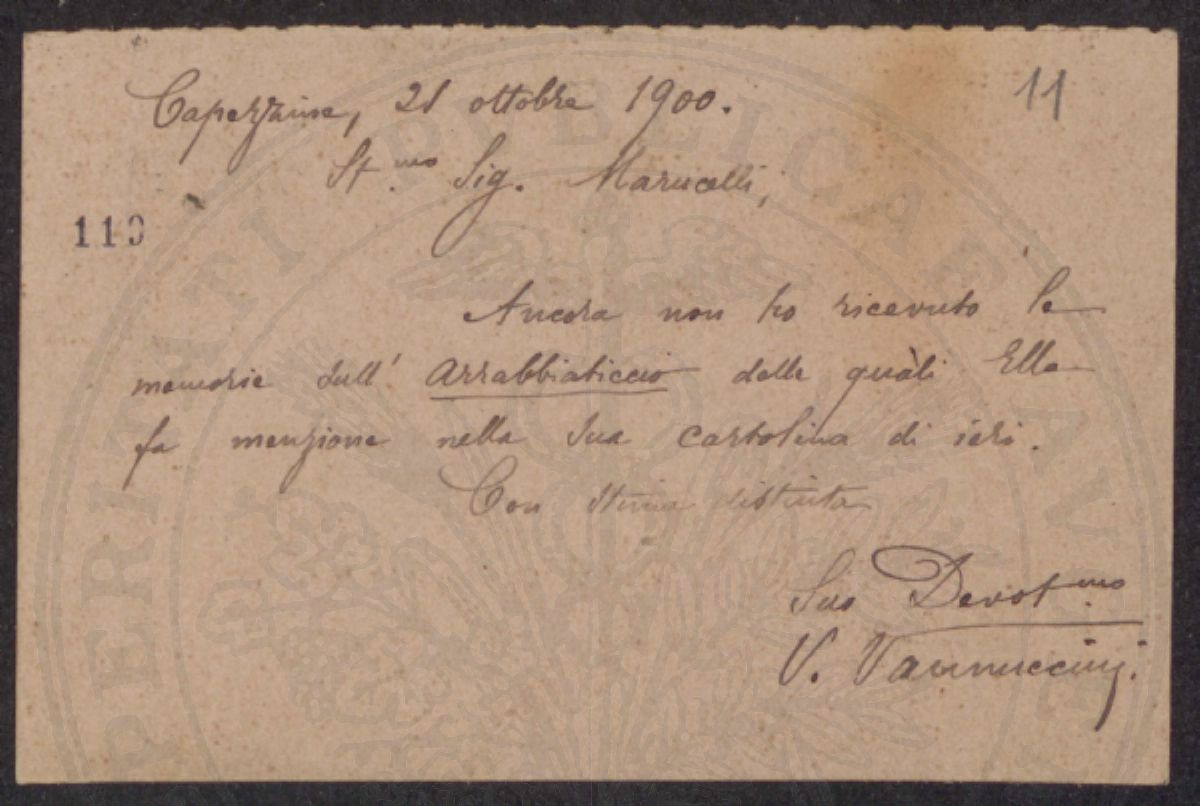 Capezzine, 21 ottobre 1900.
11
St.mo Sig. Marucelli,
110
Ancora non ho ricevuto le
memorie sull' Arrabbiaticcio delle quàli Ella
fa menzione nella Sua cartolina di ieri.
Con stima distinta
Suo Devot.mo
V. Vannuccini.
PERITATI PUBLICAE AVC